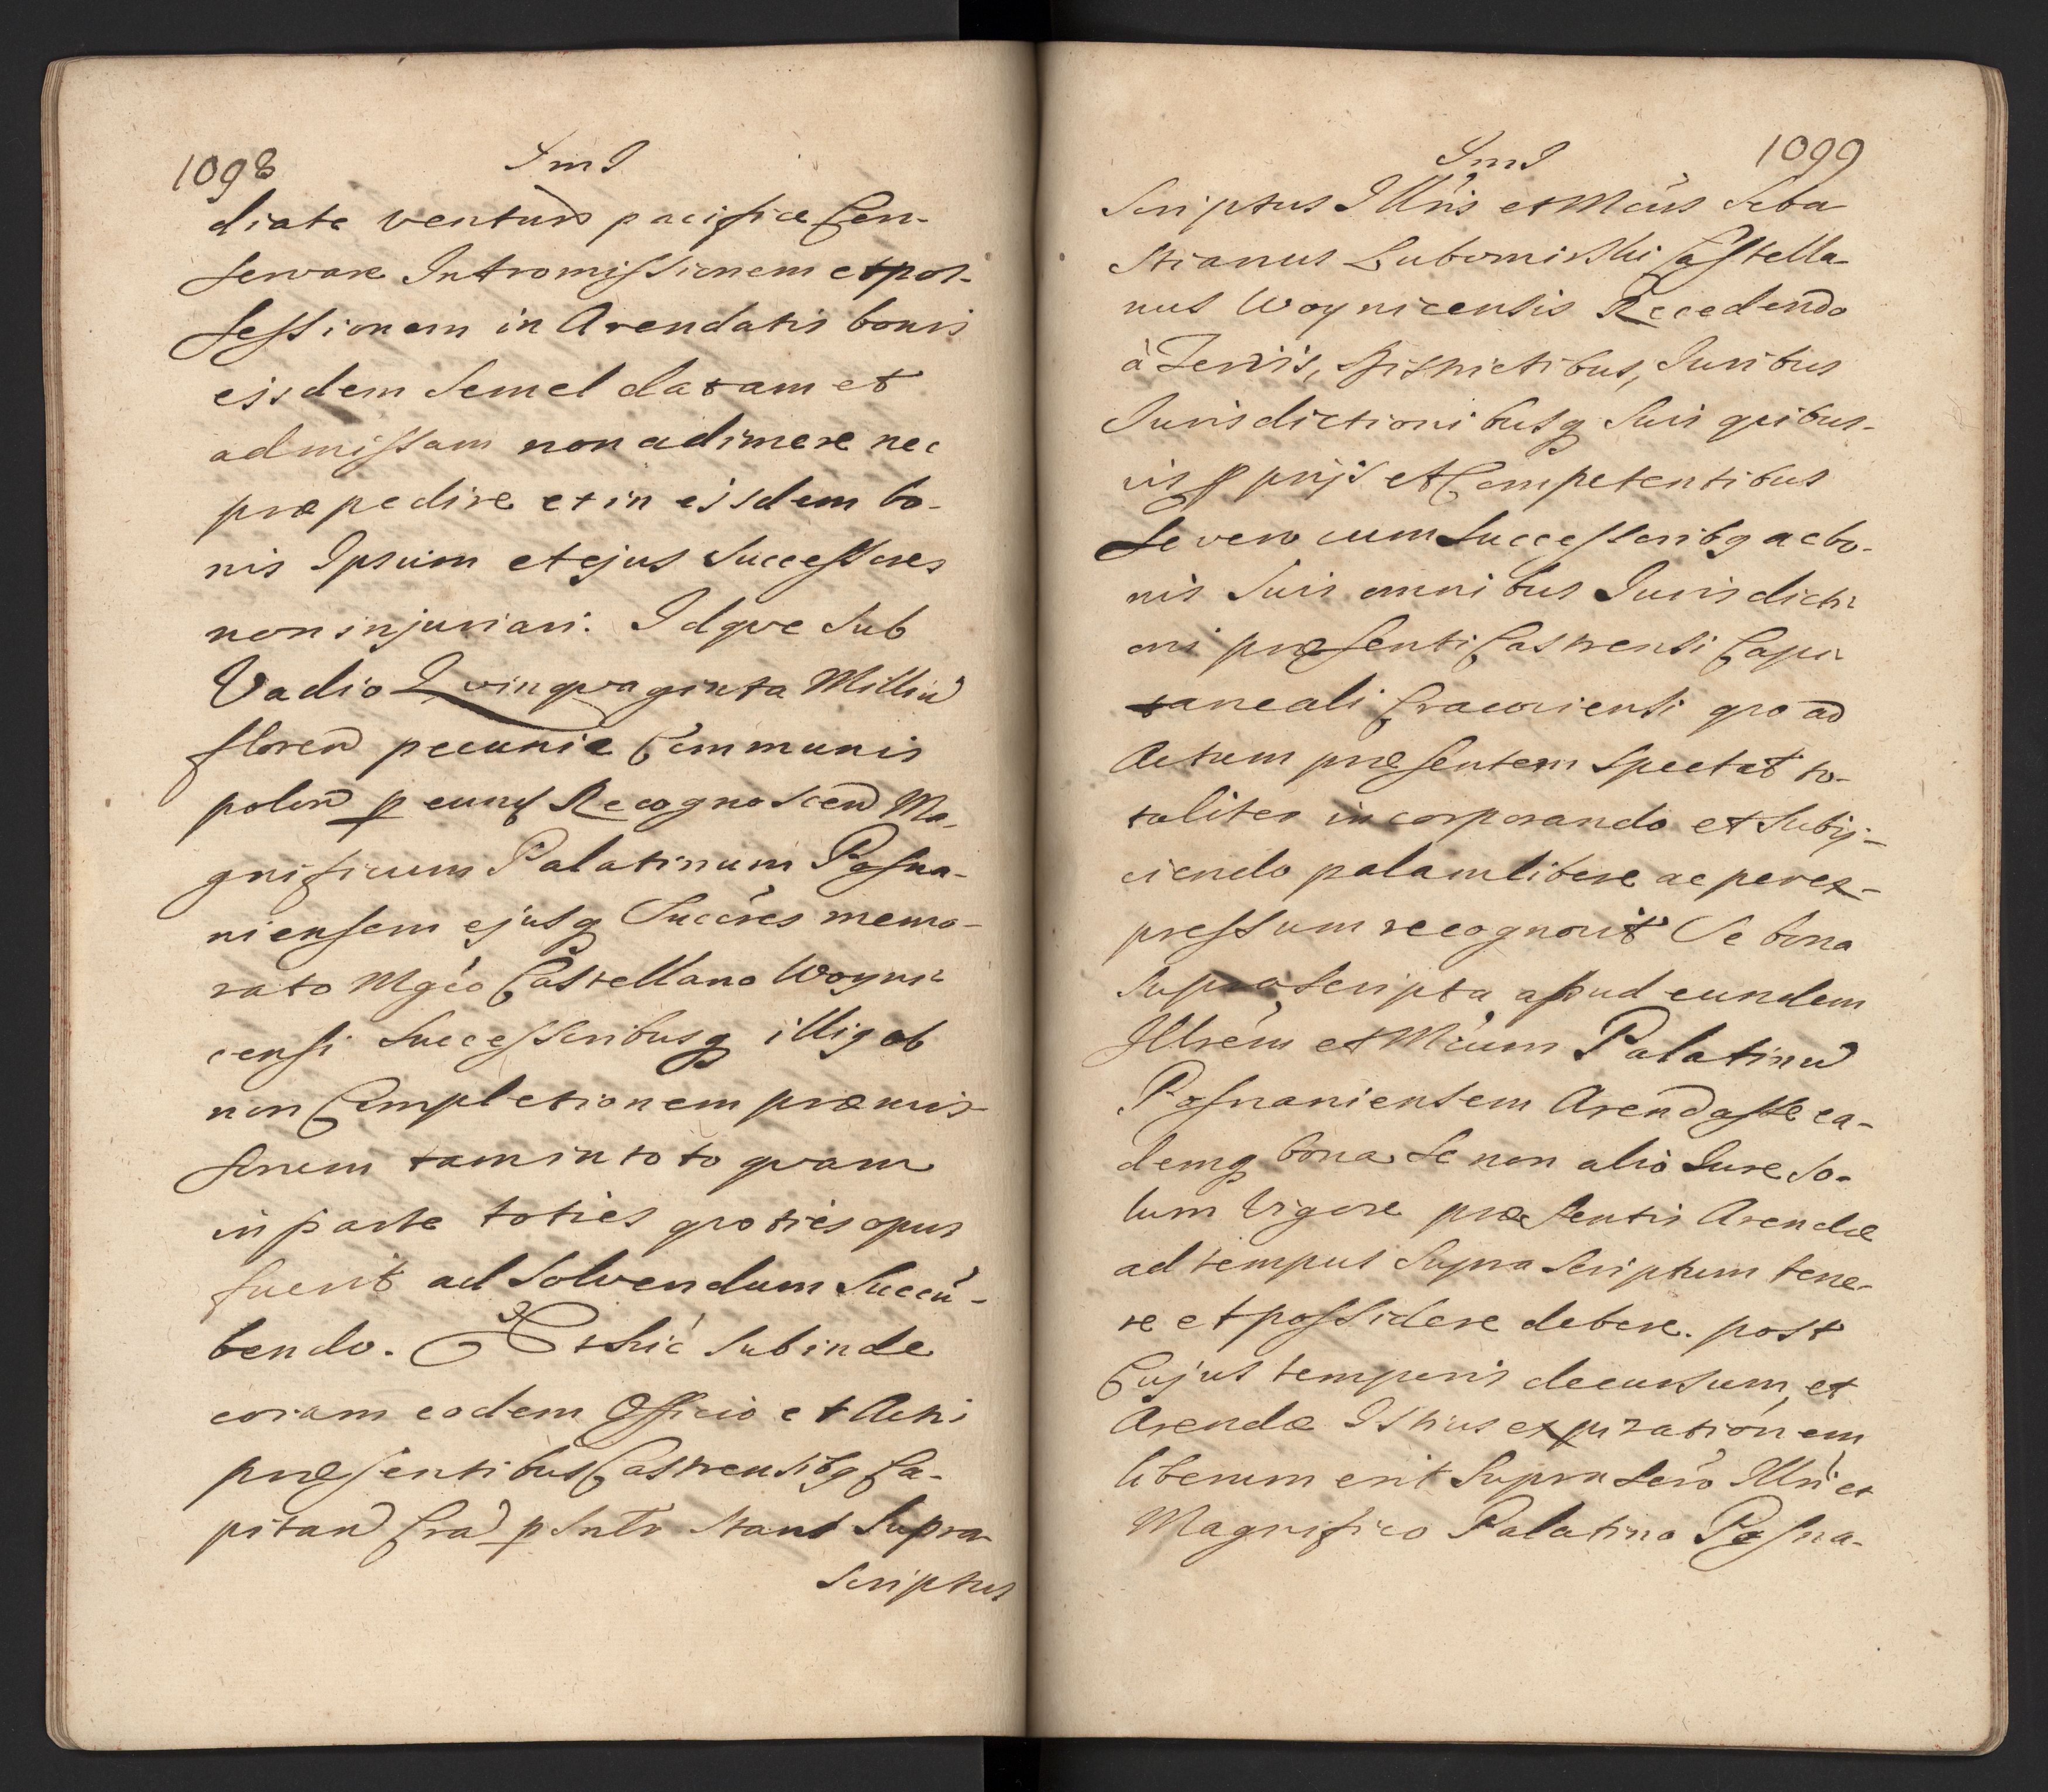 1098
SmI
diate venturã pacifice Con-
servare Intromissionem et pos-
sessionem in Arendatis bonis
eisdem semel datam et
admissam non adimere nec
præpedire et in eisdem bo-
nis Ipsum et ejus Successores
non injuriari. Idqve sub
Vadio Qvinqvaginta Milliũ
floren pecuniæ Communis
polon p eund Recognoscen Ma-
gnificum Palatinum Posna-
niensem ejusq Succres memo-
rato Mgco Castellano Woyni-
censi Successoribusq illiq ob
non Completionem præmis-
sorum tam in toto qvam
in parte toties qvoties opus
fuerit ad solvendum Succũ-
bendo. Et hic subinde
coram eodem Officio et Actis
præsentibus Castrensibq Ca-
pitan Cra pSntr stans Supra
scriptus
1099
SmI
scriptus Illris et Mcus Seba
stianus Lubomirski Castella
nus Woynicensis Recedendo
à Terris, Districtibus, Juribus
Jurisdictionibusq suis qvibus-
vis pprijs et Competentibus
se vero cum Successoribq ac bo-
nis suis omnibus Jurisdicti
oni præsenti Castrensi Capi
taneali Cracoviensi qvo ad
Actum præsentem spectat to-
taliter incorporando et subij-
ciendo palam libere ac per ex-
pressum recognovit Se bona
suprascripta apud eundem
Illrem et Mcum Palatinũ
Posnaniensem Arendasse ea-
demq bona se non alio Jure so-
lum Vigore præsentis Arendæ
ad tempus supra scriptum tene-
re et possidere debere. post
Cujus temporis decursum, et
Arendæ Istius expirationem
liberum erit supra scro Illri et
Magnifico Palatino Posna-